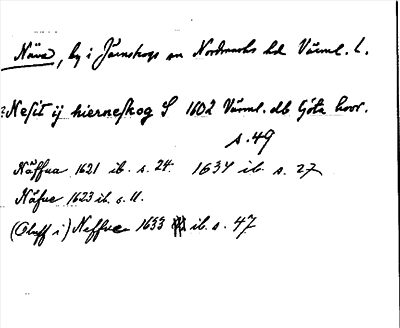 Näva, by i Järnskogs sn Nordmarks hd Värml. l.
? Nefit ij hierneskog S 1602 Värml. db Göta hovr.
s. 49
Näffua 1621 ib. s. 24. 1634 ib. s. 27
Näfue 1623 ib. s. 11.
(Oluff i) Neffue 1633 ib. s. 47